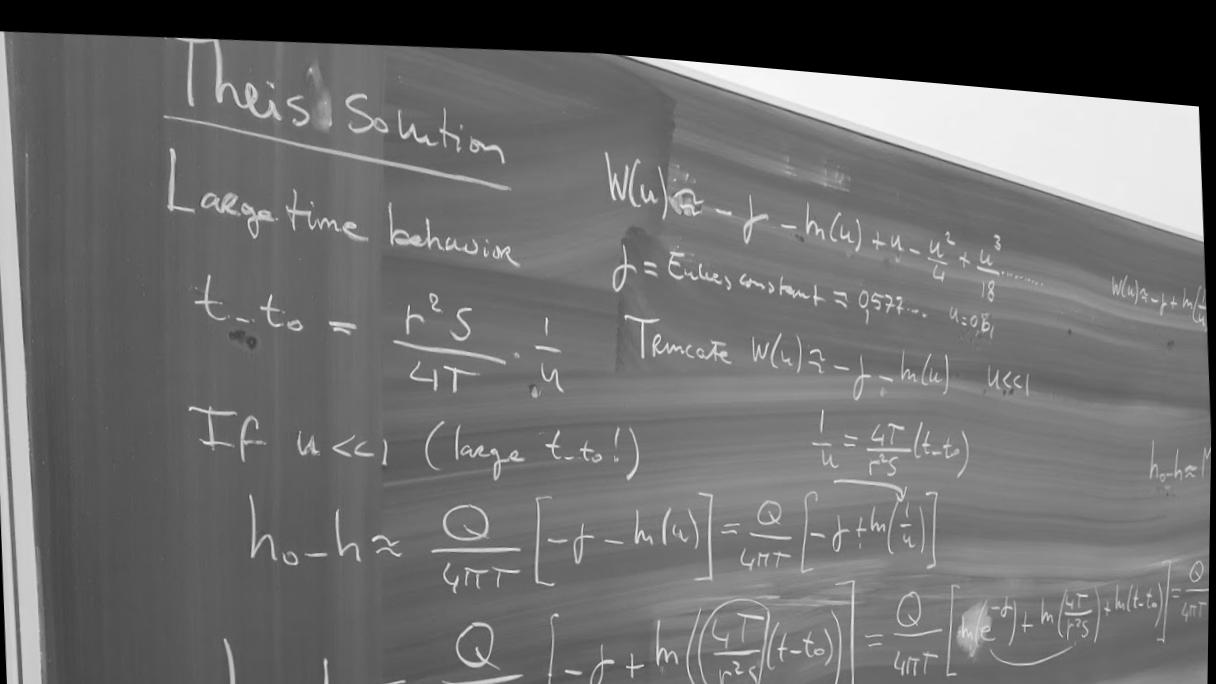 Theis Solution
Large time behavior
t-t₀ = r²S/4T · 1/u
If u<<1 (large t-t₀!)
h₀-h ≈ Q/4πT [-γ - ln(u)] = Q/4πT [-γ + ln(1/u)]
Q [-γ + ln((4T/r²S)(t-t₀))] = Q/4πT [ln(e^-γ) + ln(4T/r²S) + ln(t-t₀)] = Q/4πT
W(u) ≈ -γ - ln(u) + u - u²/4 + u³/18 ........
γ = Eulers constant = 0,577...
Truncate W(u) ≈ -γ - ln(u) u<<1
1/u = 4T/r²S (t-t₀)
h₀-h ≈